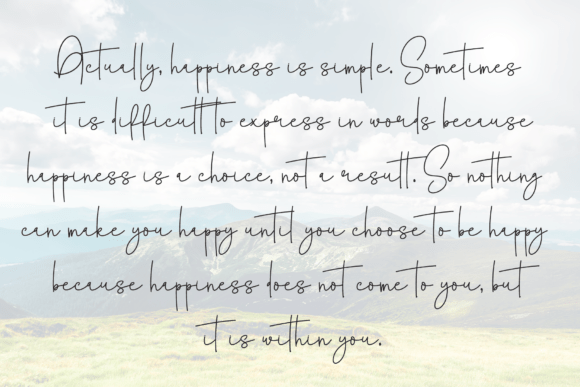 Actually, happiness is simple. Sometimes
it is difficult to express in words because
happiness is a choice, not a result. So nothing
can make you happy until you choose to be happy
because happiness does not come to you, but
it is within you.